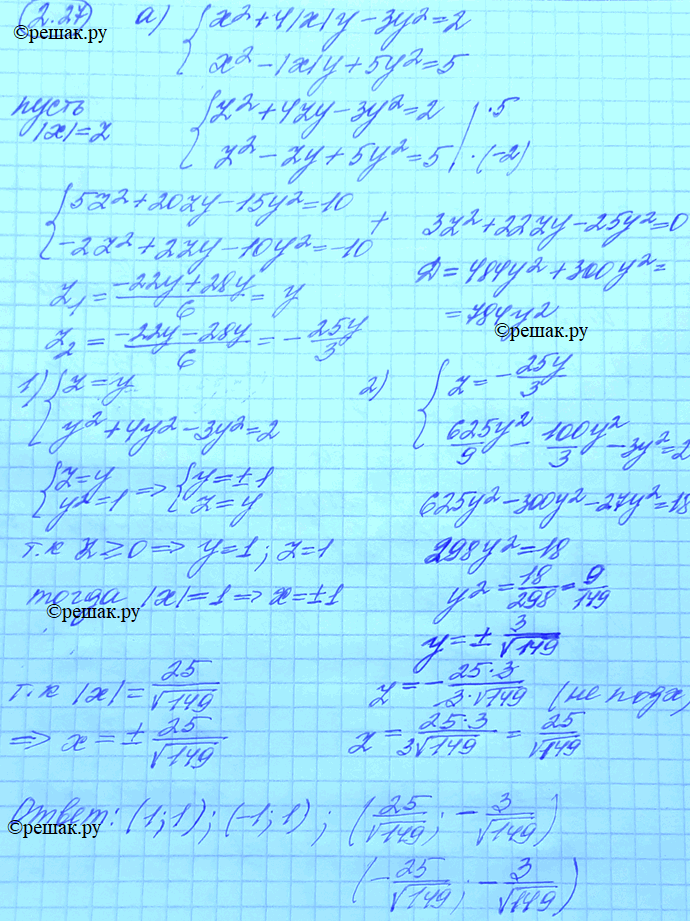 (2.27) а) { x² + 4|x|y - 3y² = 2
©решак.ру
x² - |x|y + 5y² = 5
пусть |x| = z
{ z² + 4zy - 3y² = 2 | ·5
z² - zy + 5y² = 5 | ·(-2)
{ 5z² + 20zy - 15y² = 10
-2z² + 2zy - 10y² = -10 +
3z² + 22zy - 25y² = 0
D = 484y² + 300y² =
= 784y²
©решак.ру
z₁ = (-22y + 28y)/6 = y
z₂ = (-22y - 28y)/6 = - 25y/3
1) { z = y
y² + 4y² - 3y² = 2
{ z = y
y² = 1 => { y = ±1
z = y
т.к z ⩾ 0 => y = 1; z = 1
тогда |x| = 1 => x = ±1
©решак.ру
2) { z = - 25y/3
625y²/9 - 100y²/3 - 3y² = 2
625y² - 300y² - 27y² = 18
298y² = 18
y² = 18/298 = 9/149
y = ± 3/√149
z = - 25·3/3·√149 (не подх)
z = 25·3/3√149 = 25/√149
т.к |x| = 25/√149
=> x = ± 25/√149
Ответ: (1; 1); (-1; 1); (25/√149; - 3/√149)
©решак.ру
(- 25/√149; - 3/√149)